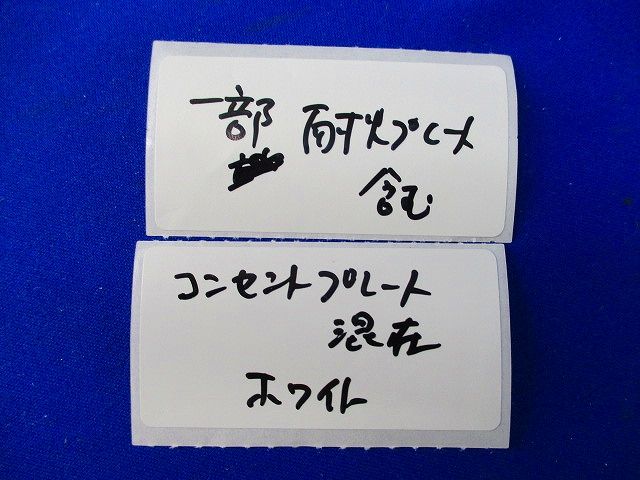 一部 耐火プレート
含む
コンセントプレート
混在
ホワイト